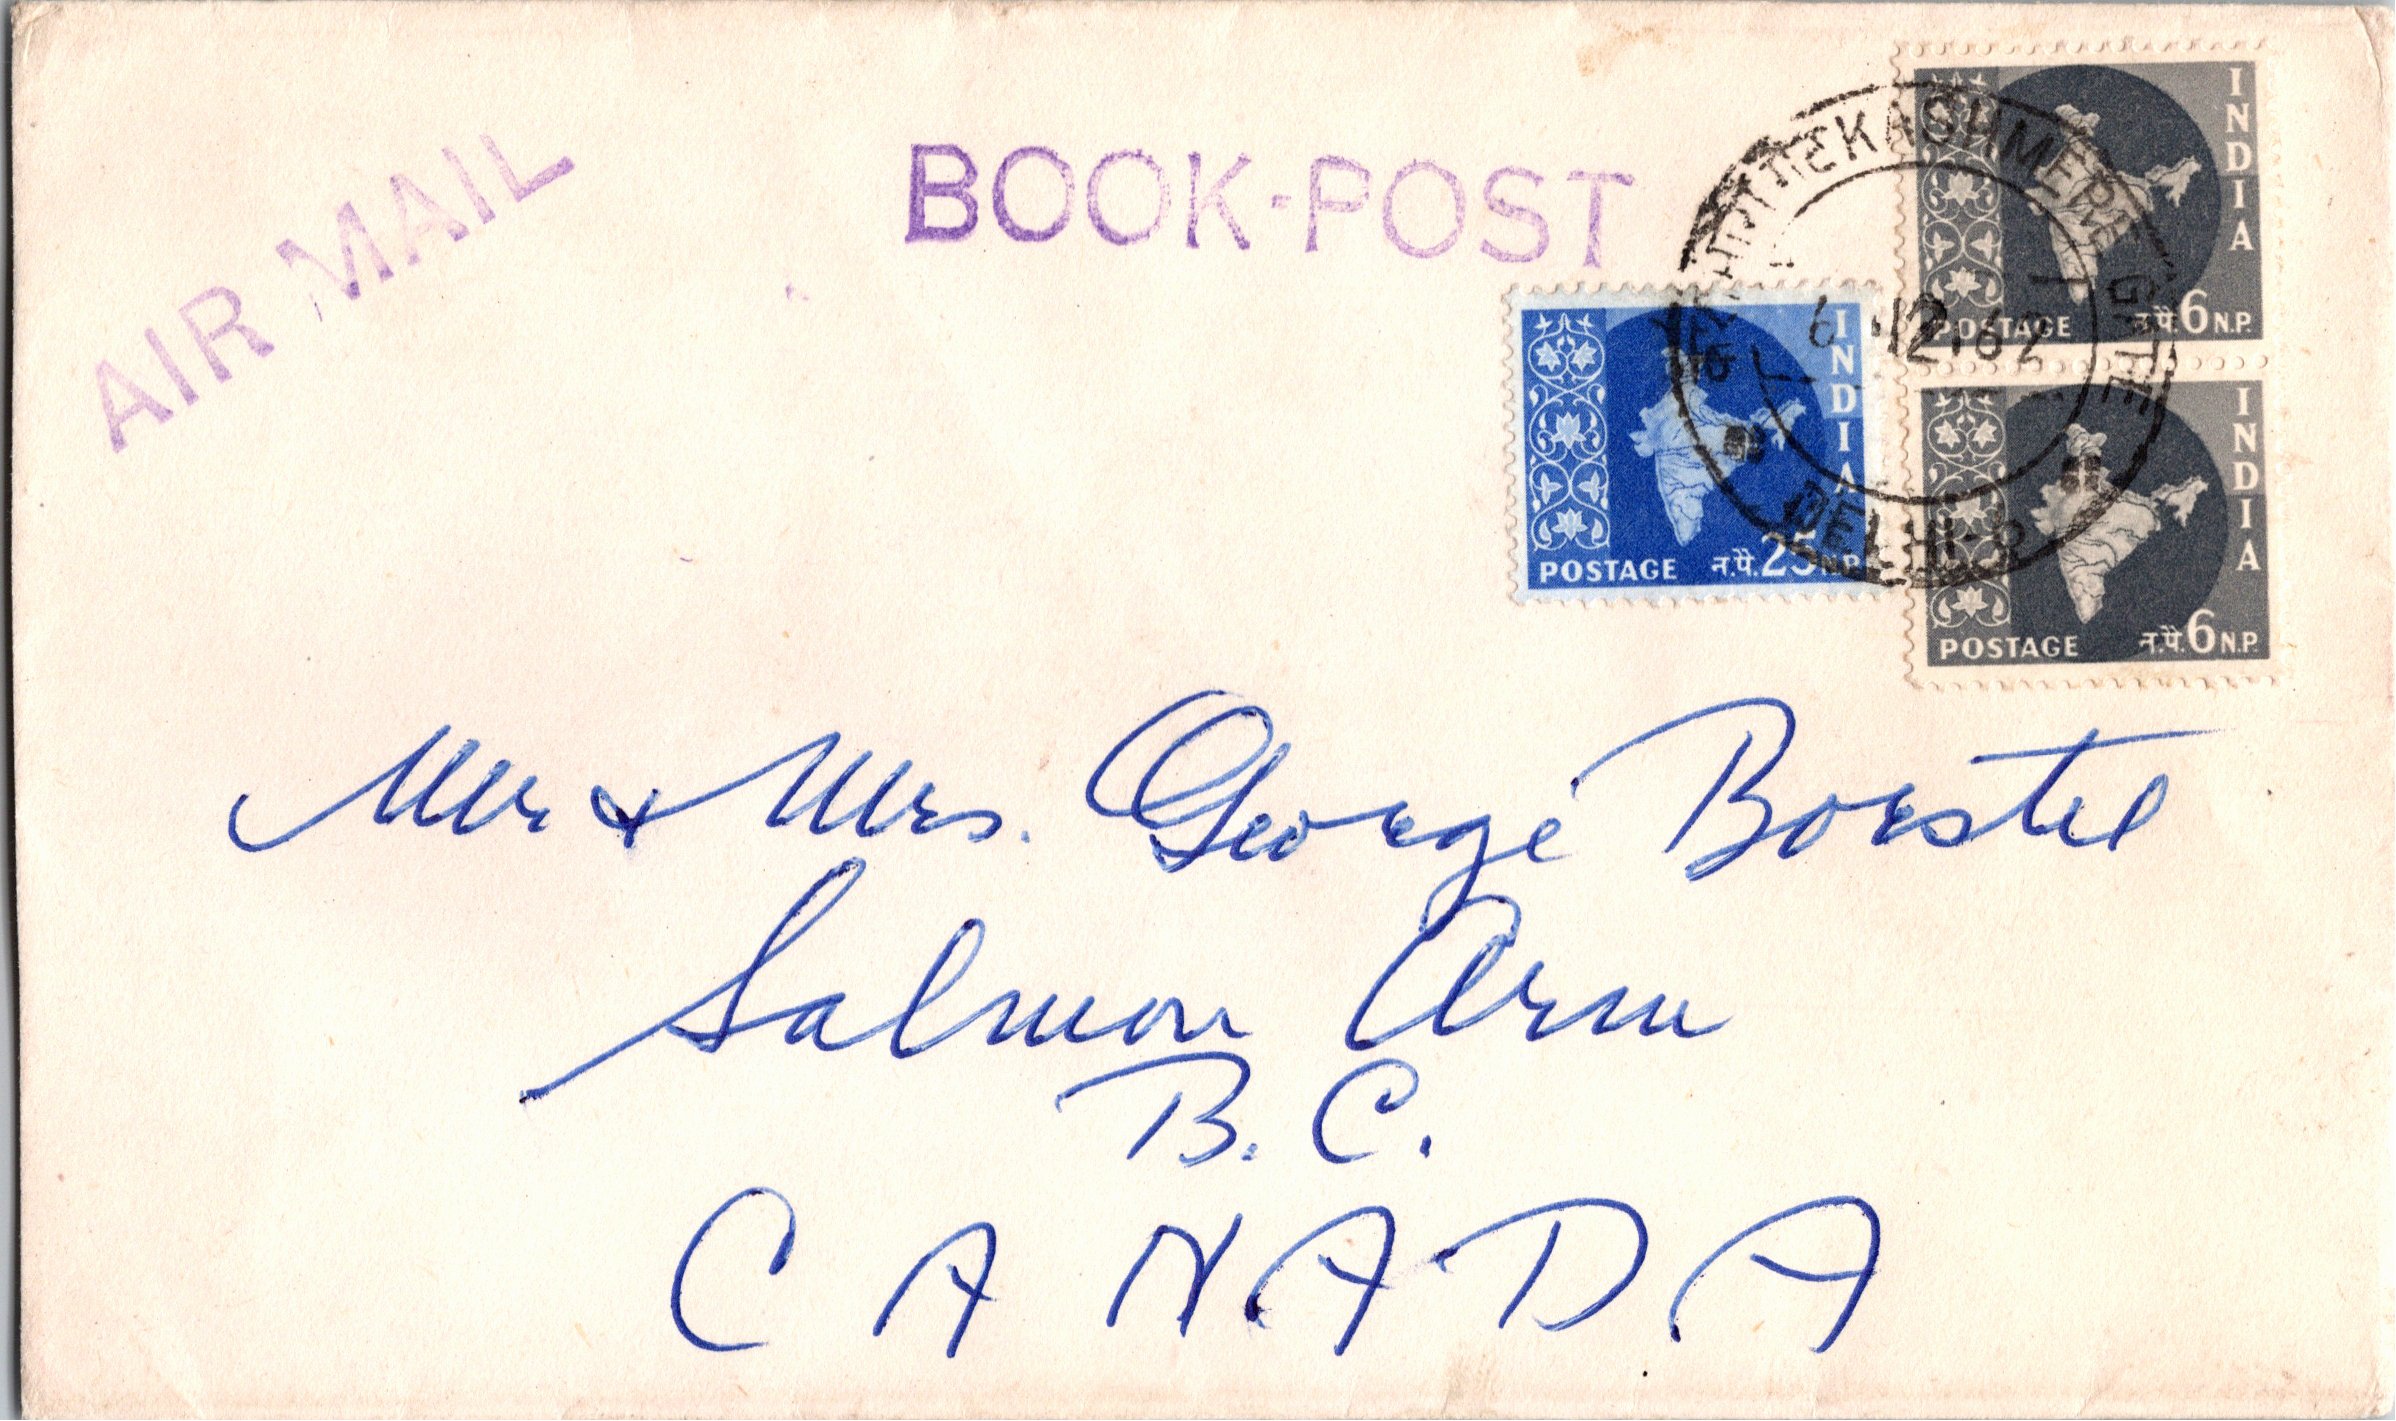 AIR MAIL
BOOK-POST
INDIA
POSTAGE न.पै. 6 N.P.
INDIA
POSTAGE न.पै. 25 N.P.
INDIA
POSTAGE न.पै. 6 N.P.
KASHMERE GATE
6.12.62
DELHI-6
Mr & Mrs. George Borstel
Salmon Arm
B.C.
CANADA